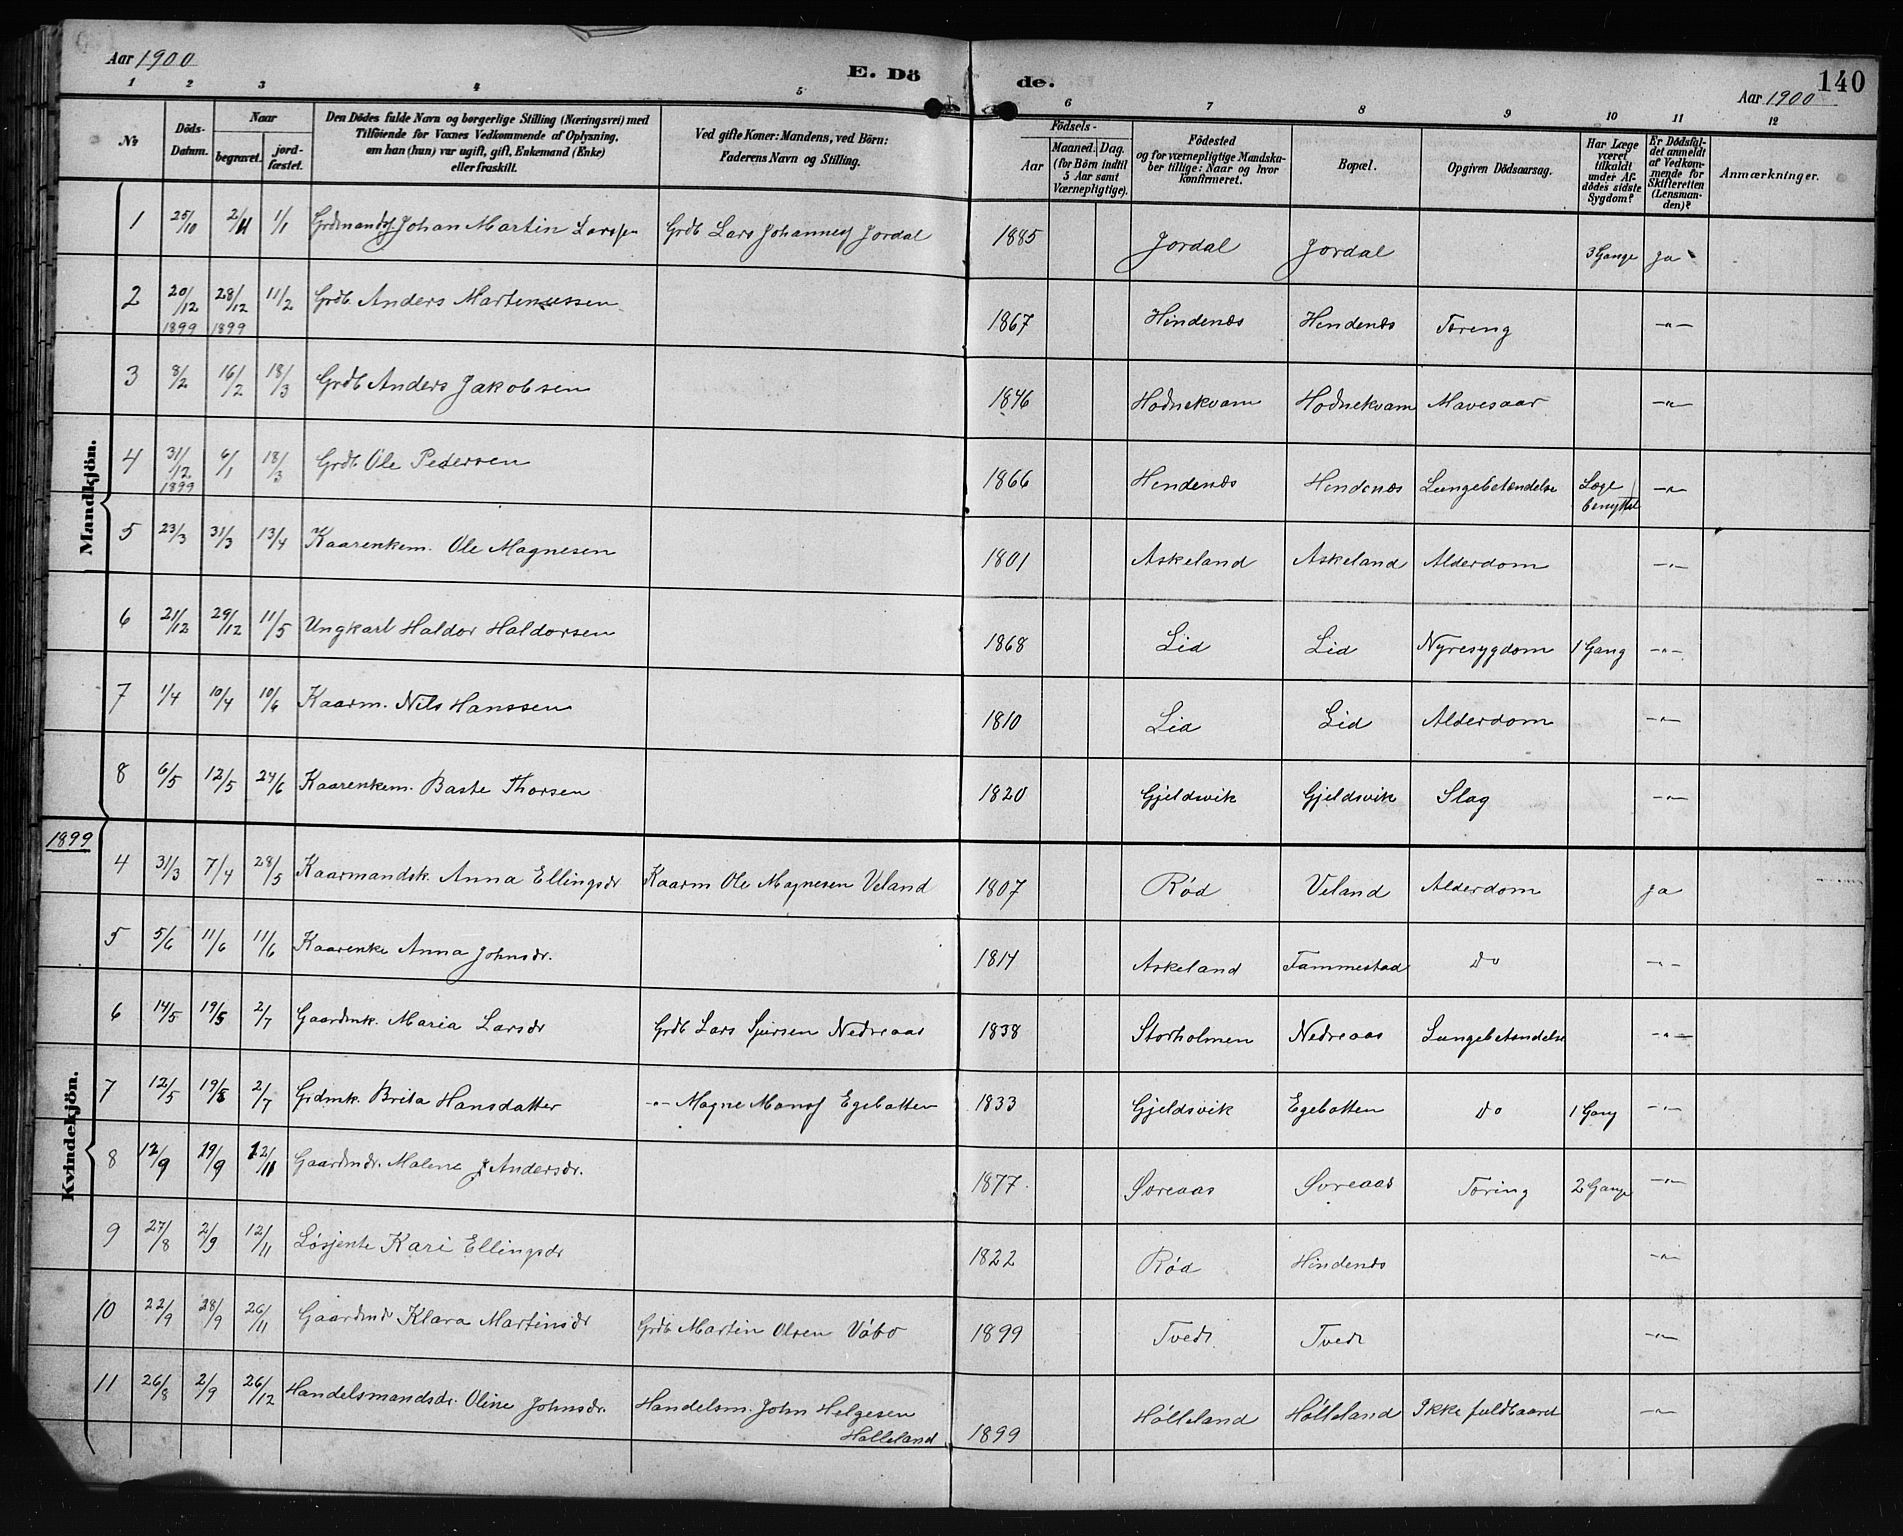 Aar 1900
E. Dö de.
140
Aar 1900
1 2 3 4 5 6 7 8 9 10 11 12
No
Döds-Datum.
Naar
begravet.
jord-fæstet.
Den Dödes fulde Navn og borgerlige Stilling (Næringsvei) med
Tilföiende for Voxnes Vedkommende af Oplysning,
om han (hun) var ugift, gift, Enkemand (Enke)
eller fraskilt.
Ved gifte Koner: Mandens, ved Börn:
Faderens Navn og Stilling.
Födsels-
Aar
Maaned. Dag.
(for Börn indtil
5 Aar samt
Værnepligtige).
Födested
og for værnepligtige Mandska-
ber tillige: Naar og hvor
konfirmeret.
Bopæl.
Opgiven Dödsaarsag.
Har Læge
været
tilkaldt
under Af-
dödes sidste
Sygdom?
Er Dödsfal-
det anmeldt
af Vedkom-
mende for
Skifteretten
(Lensman-
den)?
Anmærkninger.
Mandkjön.
1 25/10 2/11 1/1 Grdmands. Johan Martin Larssen Grdb Lars Johanness Jordal 1885 Jordal Jordal 3 Gange ja
2 20/12 1899 28/12 1899 11/2 Grdb. Anders Martinussen 1867 Hindenæs Hindenæs Tæring -"-
3 8/2 16/2 18/3 Grdb Anders Jakobsen 1846 Hodnekvam Hodnekvam Mavesaar -"-
4 31/12 1899 6/1 18/3 Grdb Ole Pedersen 1866 Hindenæs Hindenæs Lungebetændelse Læge benyttet -"-
5 23/3 31/3 13/4 Kaarenkem. Ole Magnesen 1801 Askeland Askeland Alderdom -"-
6 21/12 29/12 11/5 Ungkarl Haldor Haldorsen 1868 Lid Lid Nyresygdom 1 Gang -"-
7 1/4 10/4 10/6 Kaarm. Nils Hanssen 1810 Lid Lid Alderdom -"-
8 6/5 12/5 24/6 Kaarenkem. Baste Thorsen 1820 Gjeldsvik Gjeldsvik Slag -"-
1899
Kvindekjön.
4 31/3 7/4 28/5 Kaarmandsk. Anna Ellingsdr Kaarm Ole Magnesen Veland 1807 Rød Veland Alderdom ja
5 5/6 11/6 11/6 Kaarenke Anna Johnsdr. 1814 Askeland Fammestad Do -"-
6 14/5 19/5 2/7 Gaardmk. Maria Larsdr Grdb Lars Sjursen Nedreaas 1838 Storholmen Nedreaas Lungebetændelse -"-
7 12/5 19/5 2/7 Grdmk. Brita Hansdatter -"- Magne Monss Egebotten 1833 Gjeldsvik Egebotten Do 1 Gang -"-
8 12/9 19/9 12/11 Gaardmdr. Malene J Andersdr. 1877 Søreaas Søreaas Tæring 2 Gange -"-
9 27/8 2/9 12/11 Løsjente Kari Ellingsdr 1822 Rød Hindenæs -"-
10 22/9 28/9 26/11 Gaardmdr Klara Martinsdr Grdb Martin Olsen Vabø 1899 Tvedt Tvedt -"-
11 26/8 2/9 26/12 Handelsmandsdr. Oline Johnsdr. Handelsm. John Helgesen Hølleland 1899 Hølleland Hølleland Ikke fuldbaaret -"-